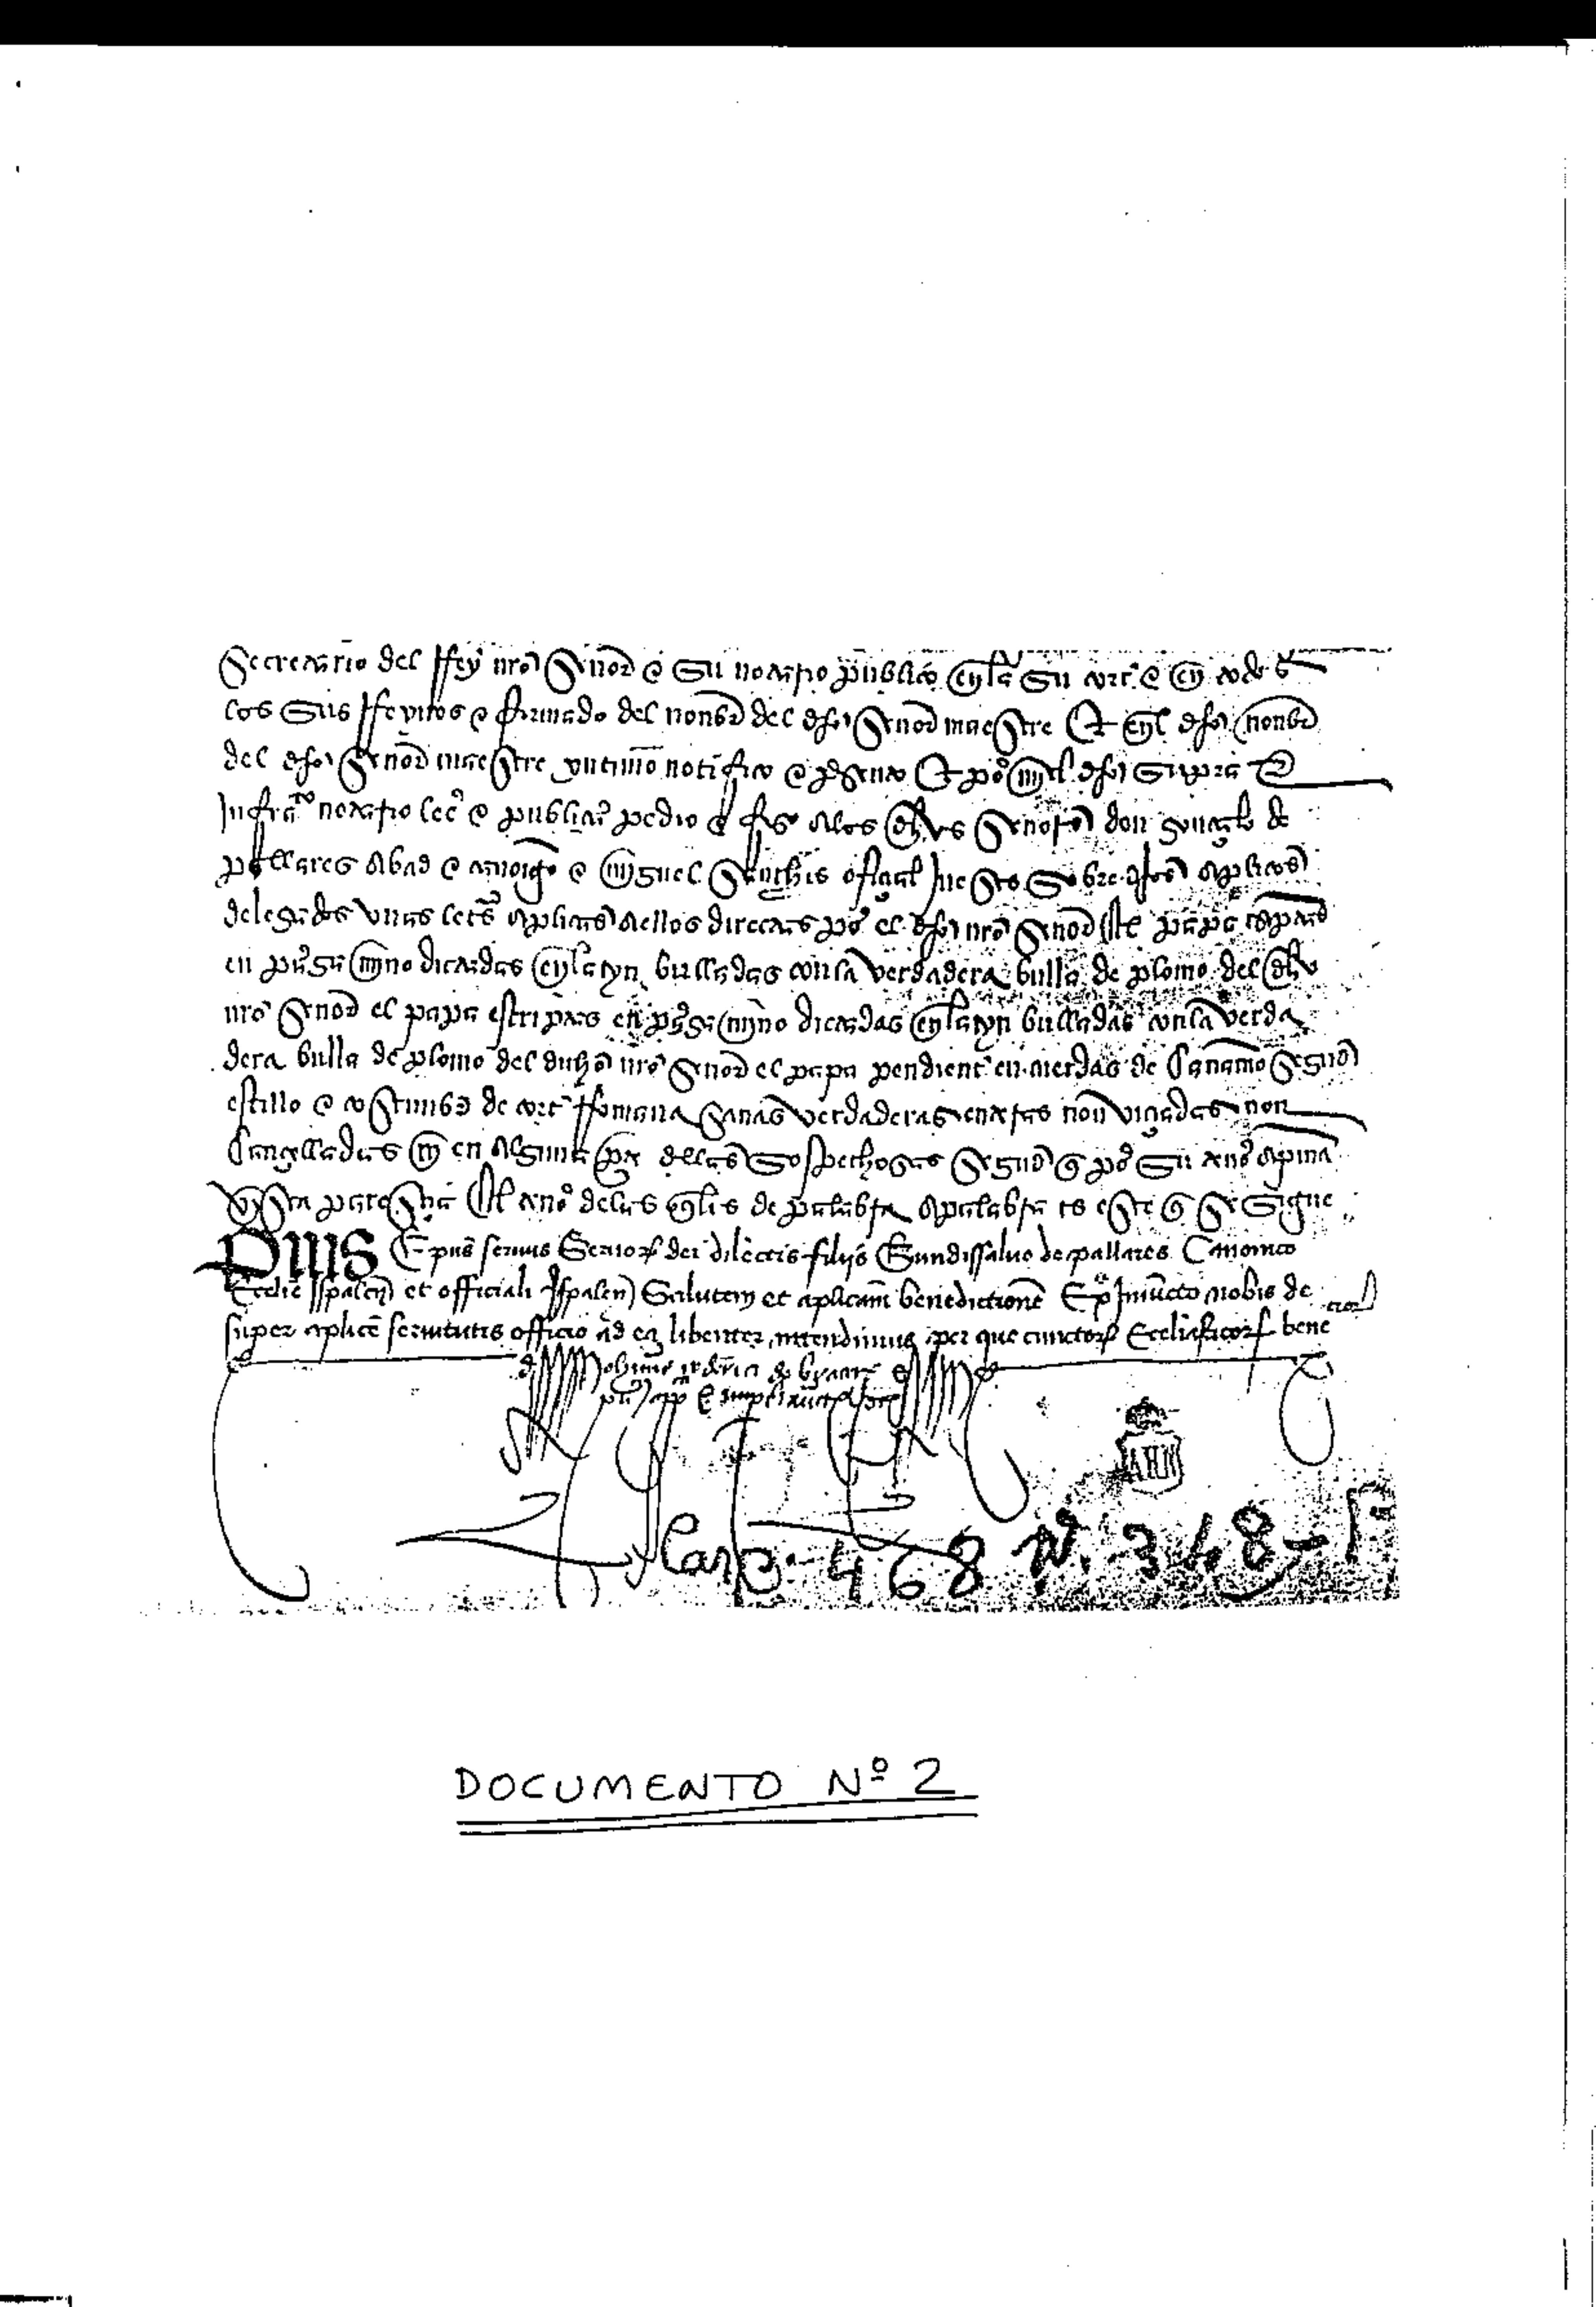 Secretario del Rey nro Senor e su notario publico en la su corte e en todos
los sus Reynos e firmado del nonbre del dho Senor maestre Et en el dho nonbre
del dho Señor maestre yntimo notifico e presento Et por mi el dho supra
Infra to notario leer e publicar pedio e fiso a los dhos Senores don gonçalo de
pallares Abad e canonigo e miguel Sanches ofiçial Jueses sobre dhos aplicos
delegados unas letras aplicas a ellos directas por el dho nro Senor el papa escriptas
en pergamino dictadas en latyn bulladas con la verdadera bulla de plomo del dho
nro Senor el papa escriptas en pergamino dictadas en latyn bulladas con la verda
dera bulla de plomo del dicho nro Senor el papa pendiente en cuerdas de Canamo segund
estillo e costunbre de corte Romana sanas verdaderas enteras non viçiadas non
Cançelladas ni en Alguna parte dellas sospechosas segund que por su tenor
vista paresçia El tenor de las quales de palabra a palabra es este que se sigue
Pius Epus servus Servor dei dilectis filijs Gundissalvo de pallares Canonico
Ecclie Ispalen et officiali Ispalen Salutem et aplicam benedictione Ex Iniucto nobis de
super aplice servitutis officio ad ea libenter intendimus per que cunctor Ecclesiasticor bene
Carp. 468 N. 348
AHN
DOCUMENTO Nº 2